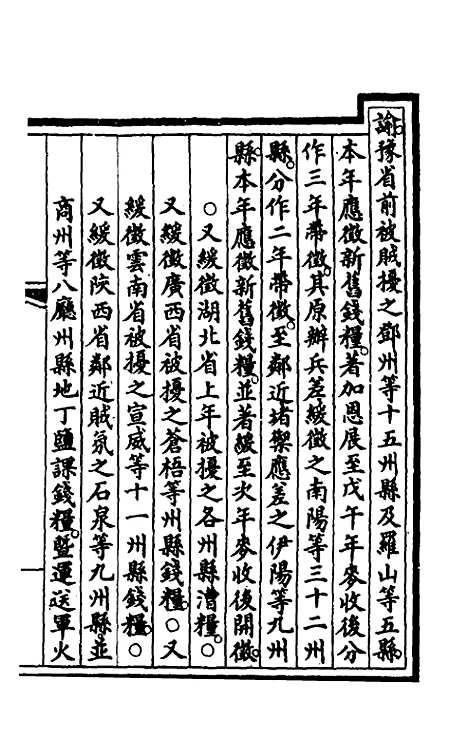 諭豫省前被賊擾之鄧州等十五州縣及羅山等五縣。
本年應徵新舊錢糧。著加恩展至戊午年麥收後分
作三年帶徵。其原辦兵差緩徵之南陽等三十二州
縣。分作二年帶徵。至鄰近堵禦應差之伊陽等九州
縣。本年應徵新舊錢糧。並著緩至次年麥收後開徵。
○又緩徵湖北省上年被擾之各州縣漕糧。○
又緩徵廣西省被擾之蒼梧等州縣錢糧。○又
緩徵雲南省被擾之宣威等十一州縣錢糧。○
又緩徵陝西省鄰近賊氛之石泉等九州縣。並
商州等八廳州縣地丁鹽課錢糧。暨運送軍火